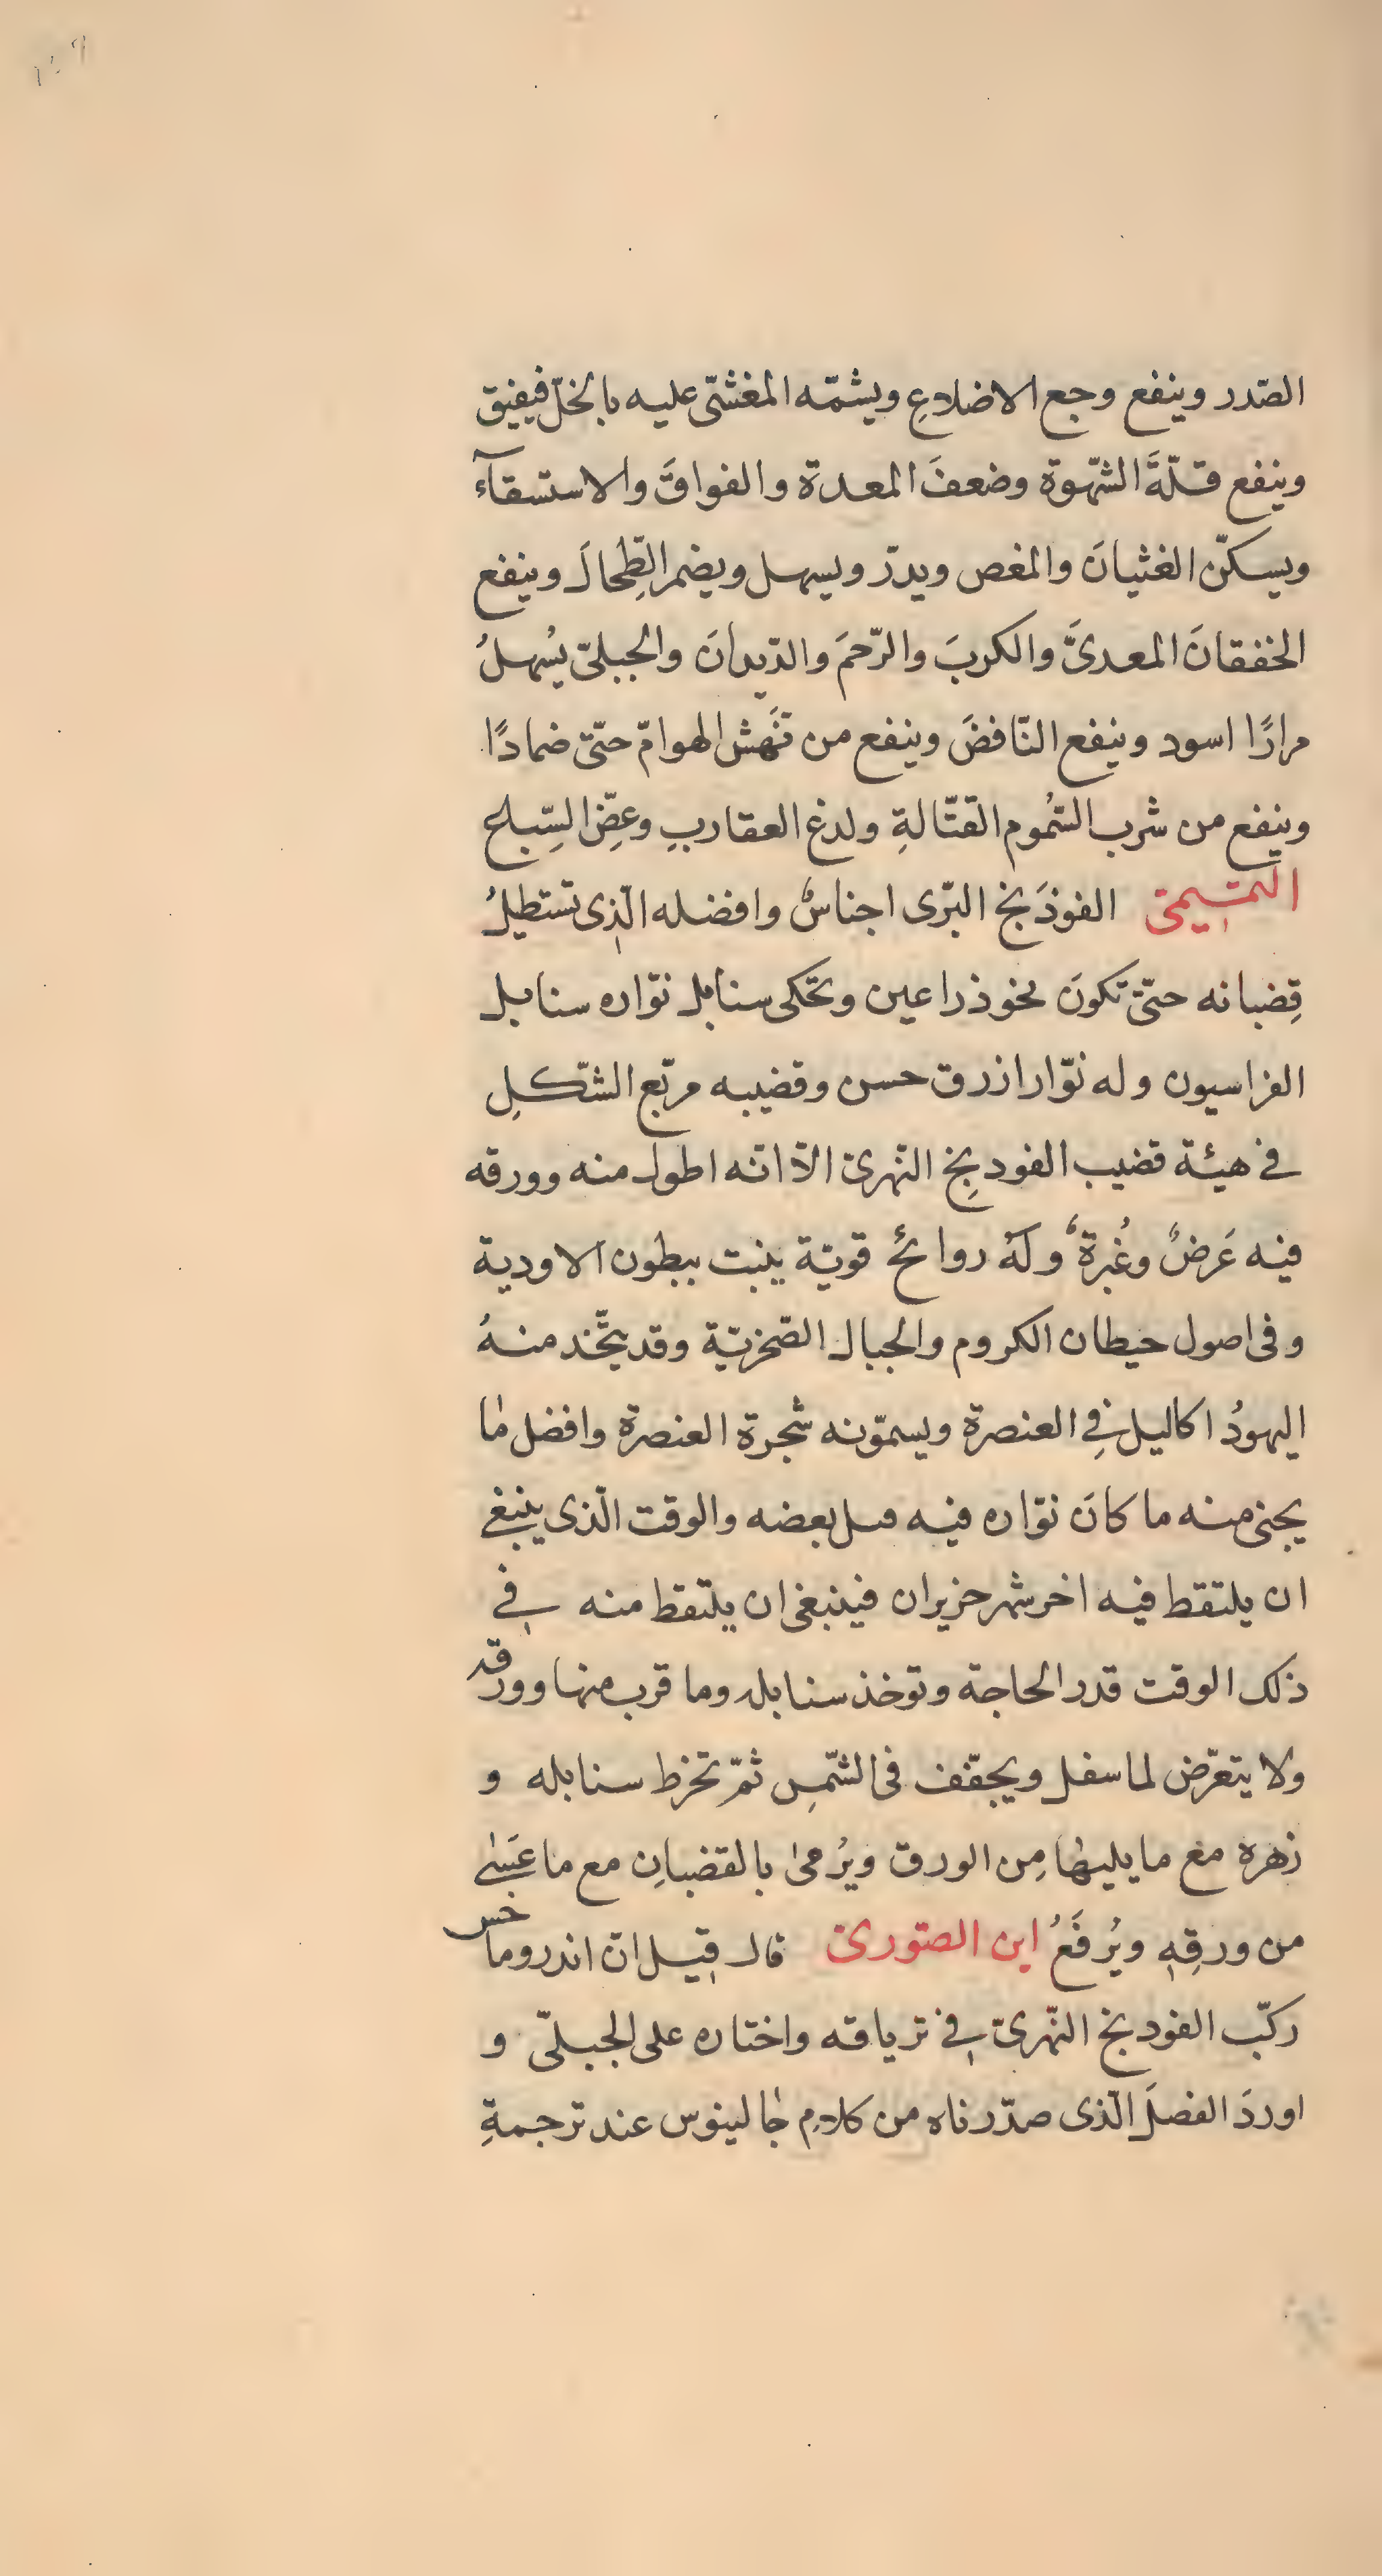 ١٠٩
الصّدر وينفع وجع الاضلاعِ ويشمّه المغشّى عليه بالخلّ فيفيق
وينفع قلّةَ الشّهوة وضعفَ المعدة والفواقَ والاستسقآء
ويسكّن الغثيانَ والمغص ويدرّ ويسهل ويضمر الطِّحالَ وينفع
الخفقانَ المعدىَّ والكربَ والرّحمَ والدّيدانَ والجبلىّ يُسهلُ
مرارًا اسود وينفع النّافضَ وينفع من نَهش الهوامّ حتّى ضمادًا
وينفع من شرب السّموم القتّالةِ ولدغ العقاربِ وعضِّ السِّباع
التميمى الفوذَنج البرّى اجناسٌ وافضله الّذى تستطيلُ
قِضبانه حتّى تكونَ نحو ذراعين وتحكى سنابل نوّاره سنابل
الفراسيون وله نوّار ازرق حسن وقضيبه مربّع الشّكلِ
فى هيئة قضيب الفودنجِ النّهرىّ الّا انّه اطول منه وورقه
فيه عَرضٌ وغُبرةٌ وله روائحُ قويّة ينبت ببطون الاودية
وفى اصول حيطان الكروم والجبال الصّخريّة وقد يتّخذ منهُ
اليهودُ اكاليل فِى العنصرة ويسمّونه شجرة العنصرة وافضل ما
يجنى منه ما كانَ نوّاره فيه بعضه والوقت الّذى ينبغى
ان يلتقط فيه اخر شهر حزيران فينبغى ان يلتقط منه فى
ذلك الوقت قدر الحاجة وتوخذ سنابله وما قرب منها وورقه
ولا يتعرّض لما سفل ويجفّف فى الشّمسِ ثمّ تخرط سنابله و
زهرة مع ما يليها مِن الورق ويُرمى بالقضبانِ مع ما عَسٰى
من ورقِهِ ويُرفَعُ ابن الصّورىّ قال قيل انّ اندروماخس
ركّب الفودنج النّهرىّ فى ترياقه واختاره على الجبلىّ و
اوردَ الفصلَ الّذى صدّرناه من كلامِ جالينوس عند ترجمةِ